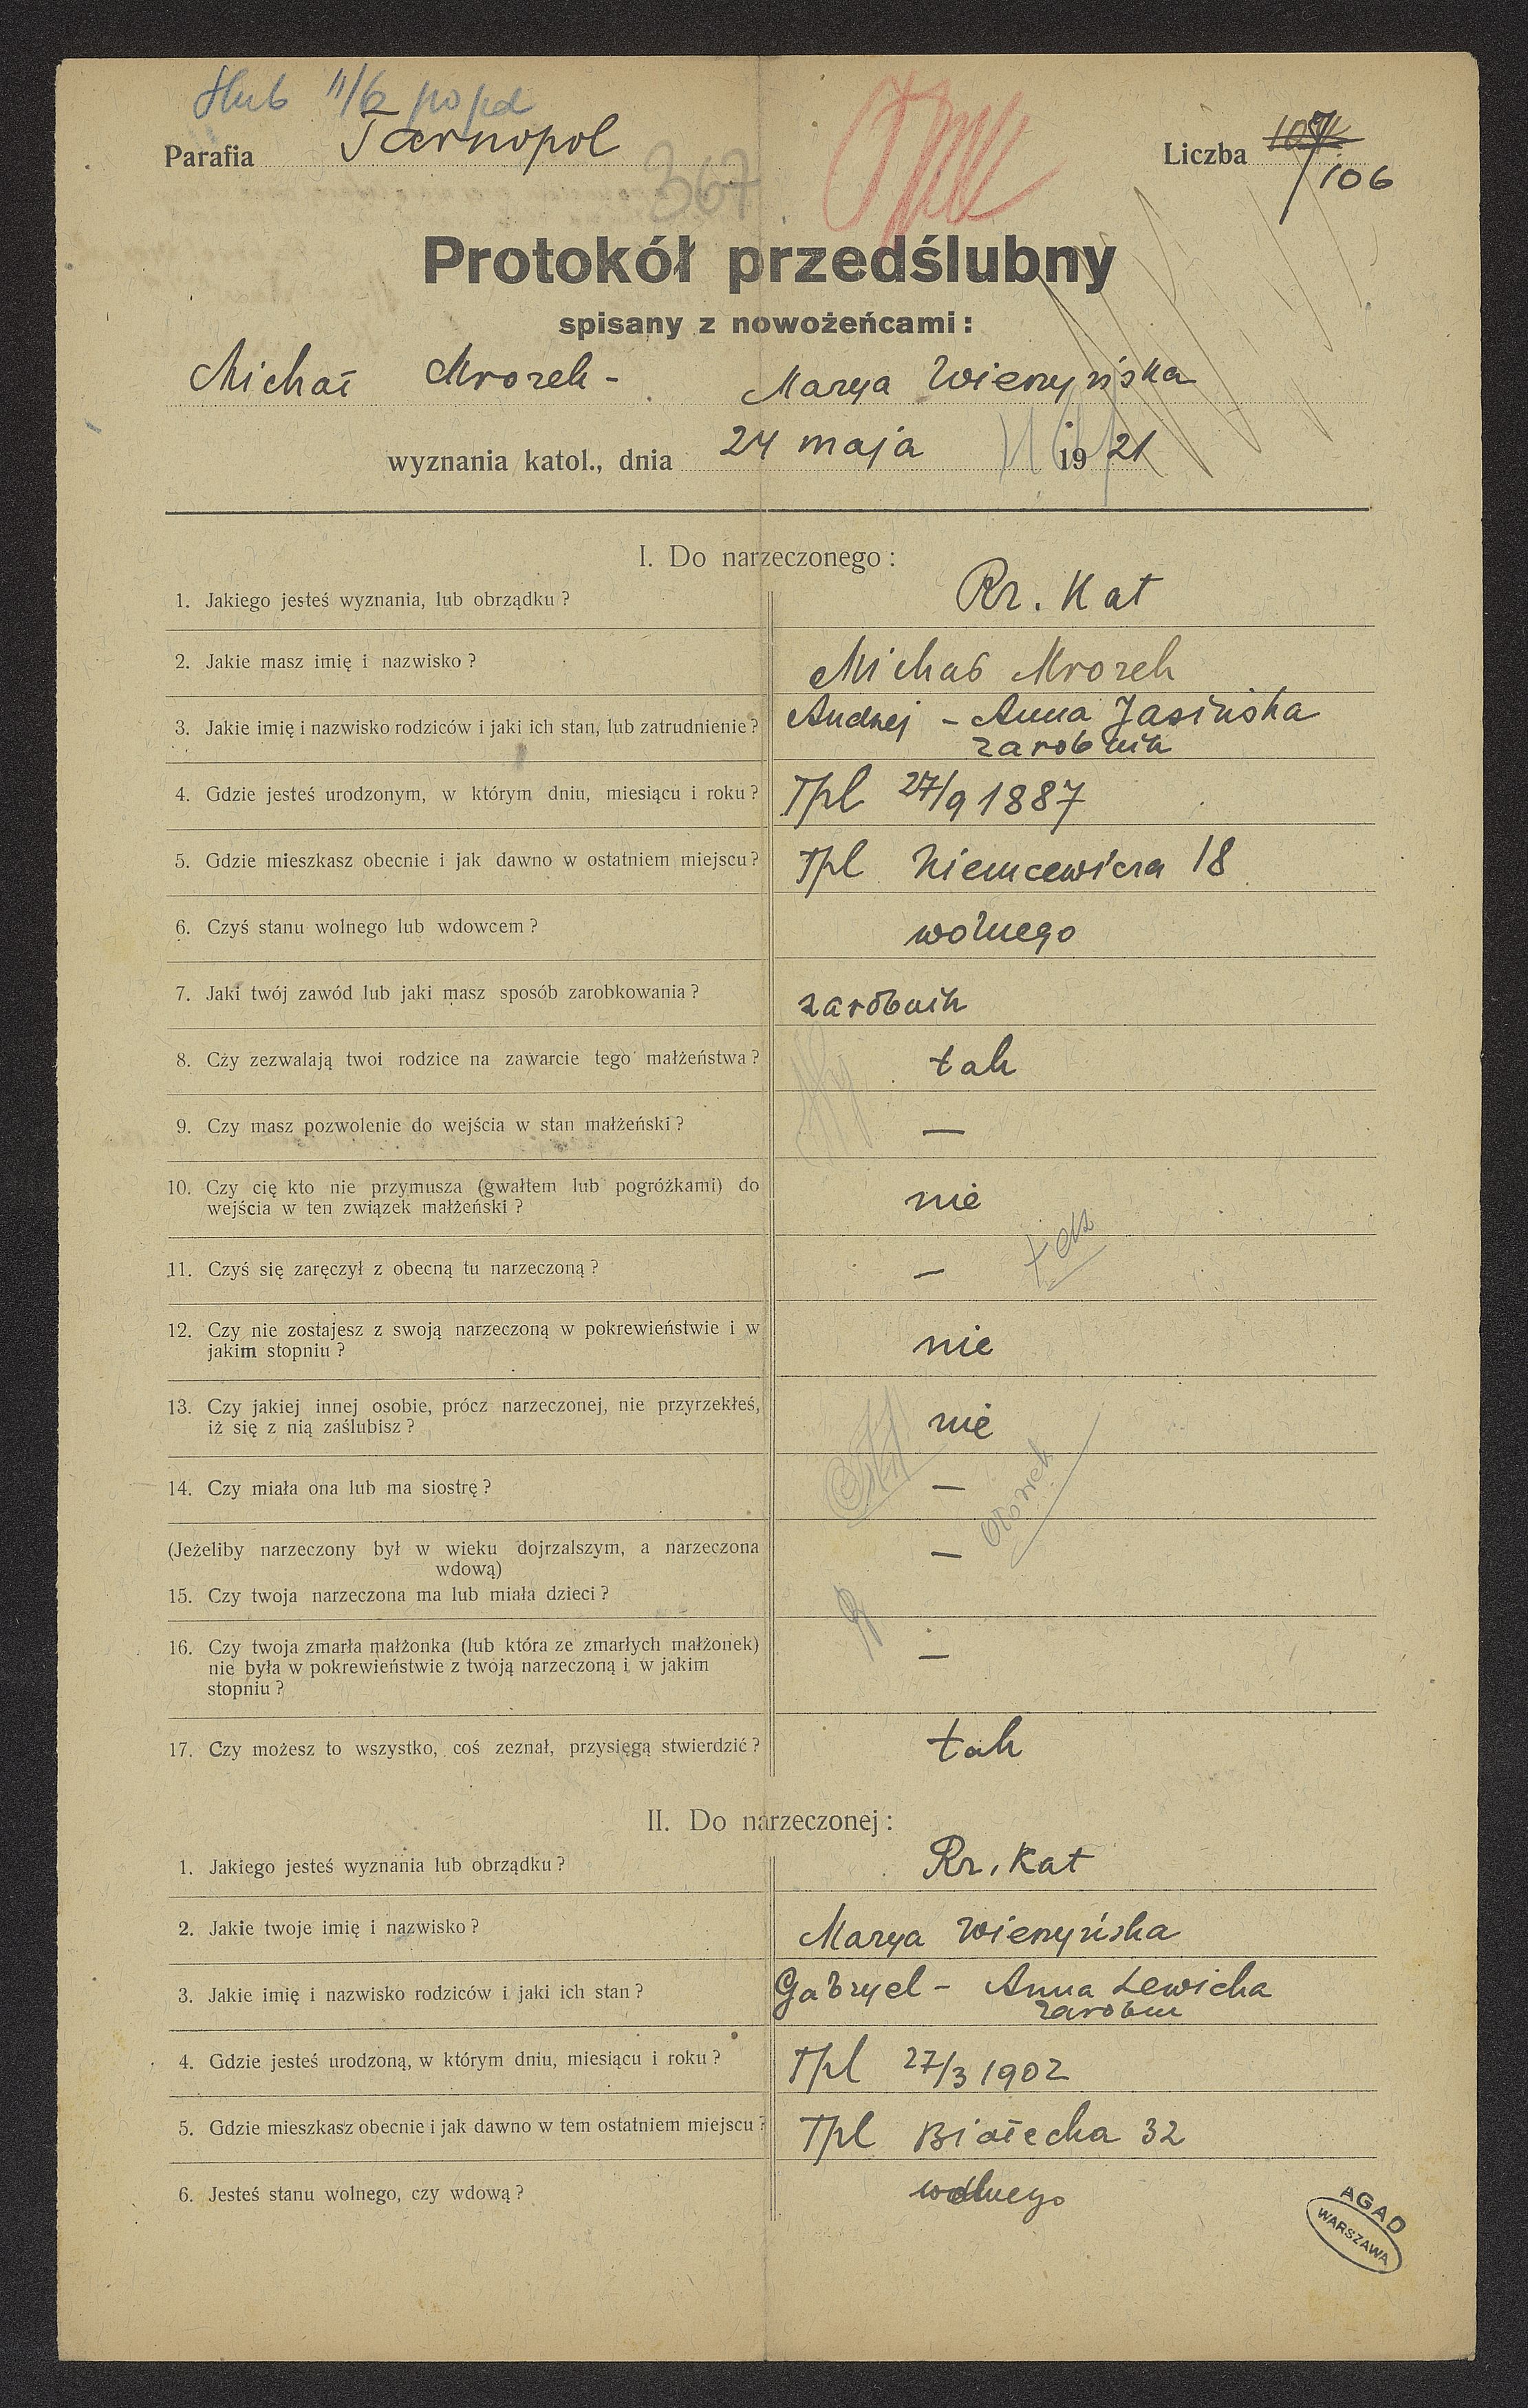 Ślub 11/6 po poł
Parafia Tarnopol
367
Liczba 106
Protokół przedślubny
spisany z nowożeńcami:
Michał Mrozek - Marya Wierzyńska
wyznania katol., dnia 24 maja 1921
I. Do narzeczonego:
1. Jakiego jesteś wyznania, lub obrządku? Rz. Kat
2. Jakie masz imię i nazwisko? Michał Mrozek
3. Jakie imię i nazwisko rodziców i jaki ich stan, lub zatrudnienie? Andrzej - Anna Jasińska
zarobnik
4. Gdzie jesteś urodzonym, w którym dniu, miesiącu i roku? Tpl 27/9 1887
5. Gdzie mieszkasz obecnie i jak dawno w ostatniem miejscu? Tpl Niemcewicza 18
6. Czyś stanu wolnego lub wdowcem? wolnego
7. Jaki twój zawód lub jaki masz sposób zarobkowania? zarobnik
8. Czy zezwalają twoi rodzice na zawarcie tego małżeństwa? tak
9. Czy masz pozwolenie do wejścia w stan małżeński? —
10. Czy cię kto nie przymusza (gwałtem lub pogróżkami) do
wejścia w ten związek małżeński? nie
11. Czyś się zaręczył z obecną tu narzeczoną? — tak
12. Czy nie zostajesz z swoją narzeczoną w pokrewieństwie i w
jakim stopniu? nie
13. Czy jakiej innej osobie, prócz narzeczonej, nie przyrzekłeś,
iż się z nią zaślubisz? nie
14. Czy miała ona lub ma siostrę? —
(Jeżeliby narzeczony był w wieku dojrzalszym, a narzeczona
wdową) —
15. Czy twoja narzeczona ma lub miała dzieci?
16. Czy twoja zmarła małżonka (lub która ze zmarłych małżonek)
nie była w pokrewieństwie z twoją narzeczoną i w jakim
stopniu? —
17. Czy możesz to wszystko, coś zeznał, przysięgą stwierdzić? tak
II. Do narzeczonej:
1. Jakiego jesteś wyznania lub obrządku? Rz. Kat
2. Jakie twoje imię i nazwisko? Marya Wierzyńska
3. Jakie imię i nazwisko rodziców i jaki ich stan? Gabryel - Anna Lewicka
zarobn
4. Gdzie jesteś urodzoną, w którym dniu, miesiącu i roku? Tpl 27/3 1902
5. Gdzie mieszkasz obecnie i jak dawno w tem ostatniem miejscu? Tpl Białecka 32
6. Jesteś stanu wolnego, czy wdową? wolnego
AGAD
WARSZAWA